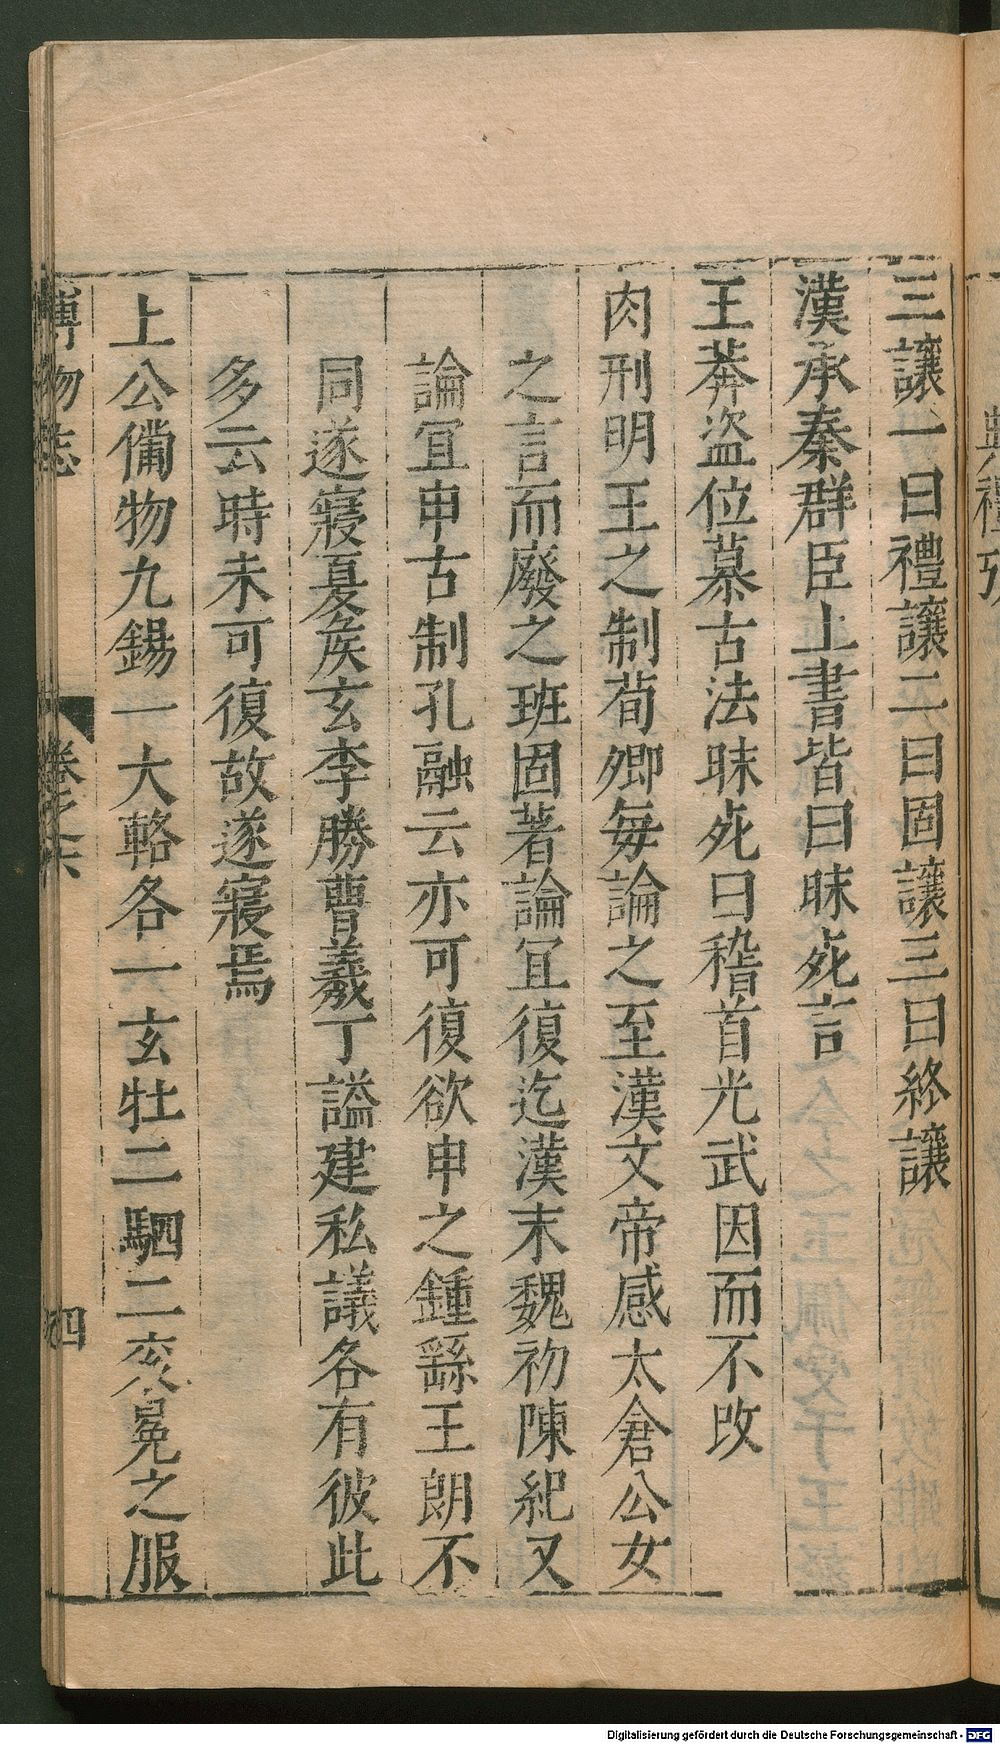 三讓一曰禮讓二曰固讓三曰終讓
漢承秦群臣上書皆曰昧死言
王莽盜位慕古法昧死曰稽首光武因而不改
肉刑明王之制荀卿每論之至漢文帝感太倉公女
之言而廢之班固著論冝復迄漢末魏初陳紀又
論冝申古制孔融云亦可復欲申之鍾繇王朗不
同遂寢夏矦玄李勝曹羲丁謐建私議各有彼此
多云時未可復故遂寢焉
上公備物九錫一大輅各一玄牡二駟二衮冕之服
博物志
卷之六
四
Digitalisierung gefördert durch die Deutsche Forschungsgemeinschaft - DFG